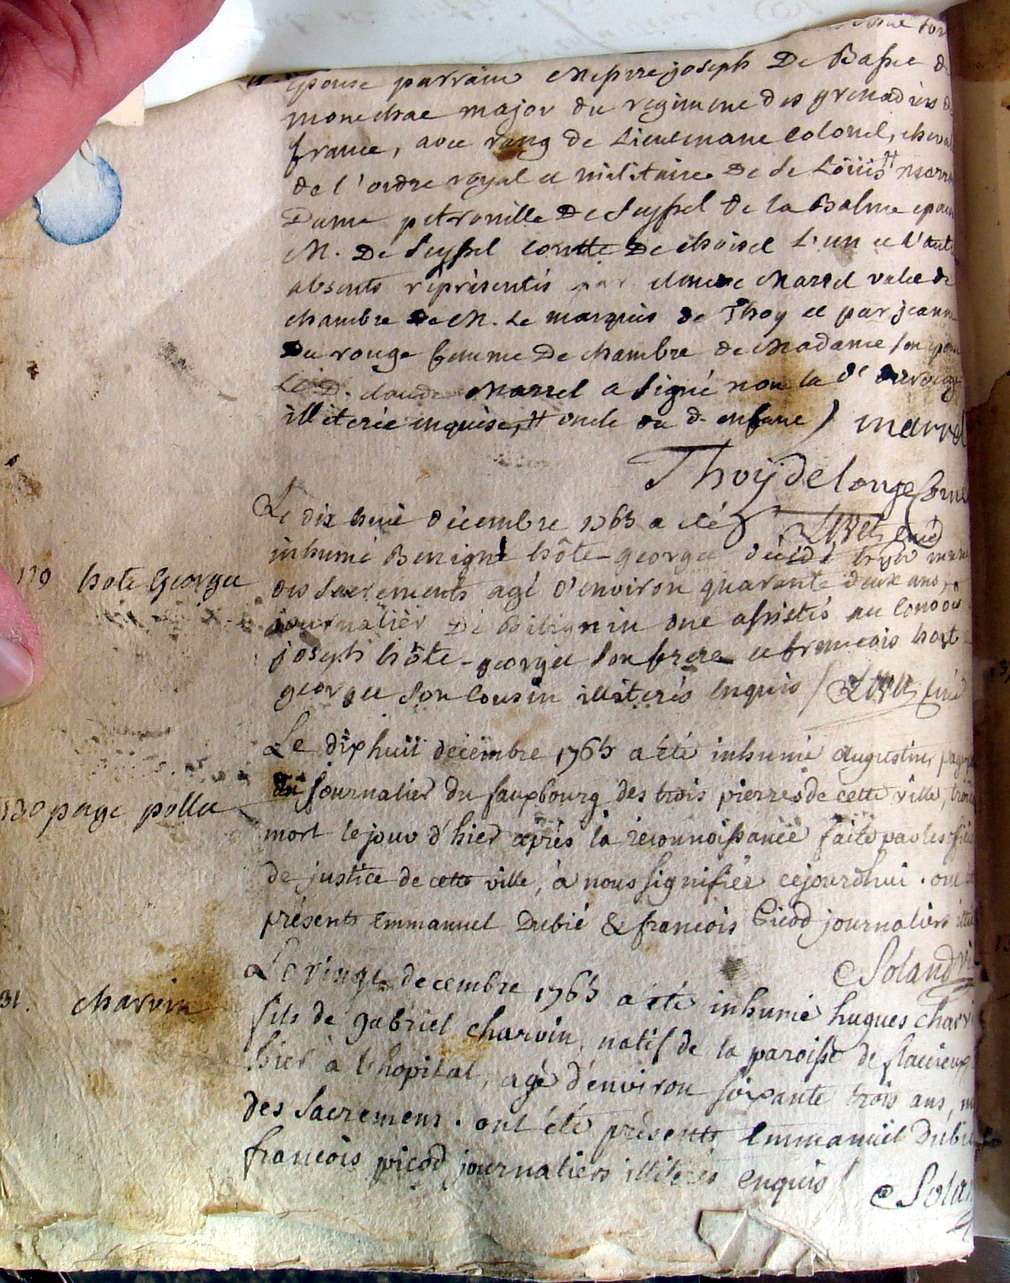 épouse parrain Messire joseph De Basse de
monechae major du regiment des grenadiers de
france, avec rang de Lieutenant colonel, cheval
de l'ordre royal et militaire De St Loüis # Marra
Dame petronille De Seyssel de la Balme epou
M. De Seyssel comte De choisel L'un et l'autr
absents réprésentés par claude Marrel valet de
chambre de M. Le marquis de Thoy et par jeann
Du rouge femme De chambre de Madame son epou
Le D. claude Marrel a signé non la de Du rouge
illiterée enquise, # oncle du d. enfant / marrel
Thoÿ de longe
Le dix huit décembre 1765 a été curé
inhumé Benigne hôte-george décédé hyer
des Sacrements agé d'environ quarante deux ans,
journalier De ont assistés au convoi
joseph hôte-george Son frere et francois hot
george Son Cousin illiterés Enquis / curé
129 hote George
Le dixhuit decembre 1765 a été inhumé augustin
journalier du fauxbourg des trois pierres de cette ville,
mort le jour d'hier après la reconnoissance faite par les
de justice de cette ville, à nous signifiée cejourdhui. ont
présents Emmanuel Dubié & francois Picod journaliers
130 page polla
Soland
Le vingt decembre 1765 a été inhumé hugues charvi
fils de gabriel charvin, natif de la paroisse de
hier à l'hopital, agé d'environ soixante trois ans, m
des Sacremens. ont été présents Emmanuel Dubié
francois picod journaliers illiterés enquis /
131. charvin
Solan